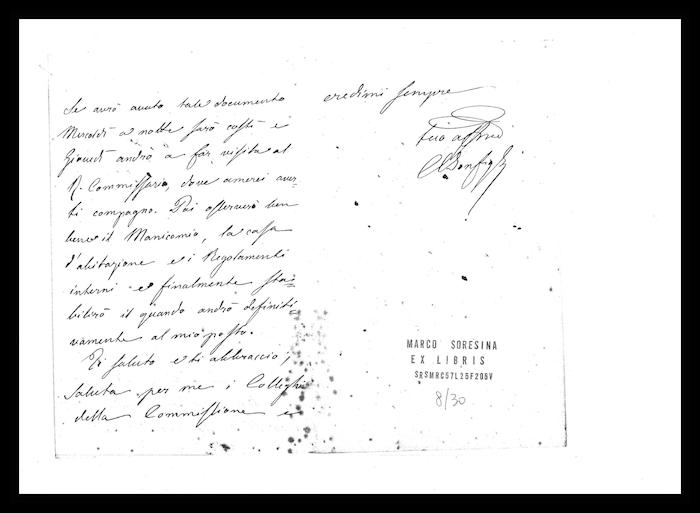 Se avrò avuto tale documento
Mercoldì a notte sarò costì e
Giovedì andrò a far visita al
R. Commissario, dove amerei aver-
ti compagno. Poi osserverò ben
bene il Manicomio, la casa
d'abitazione e i Regolamenti
interni e finalmente sta-
bilirò il quando andrò definiti-
vamente al mio posto.
Ti saluto e ti abbraccio,
saluta per me i Colleghi
della Commissione e
credimi sempre
tuo affmo
C. Bonfigli
MARCO SORESINA
EX LIBRIS
SRSMRC57L25F205V
8/30